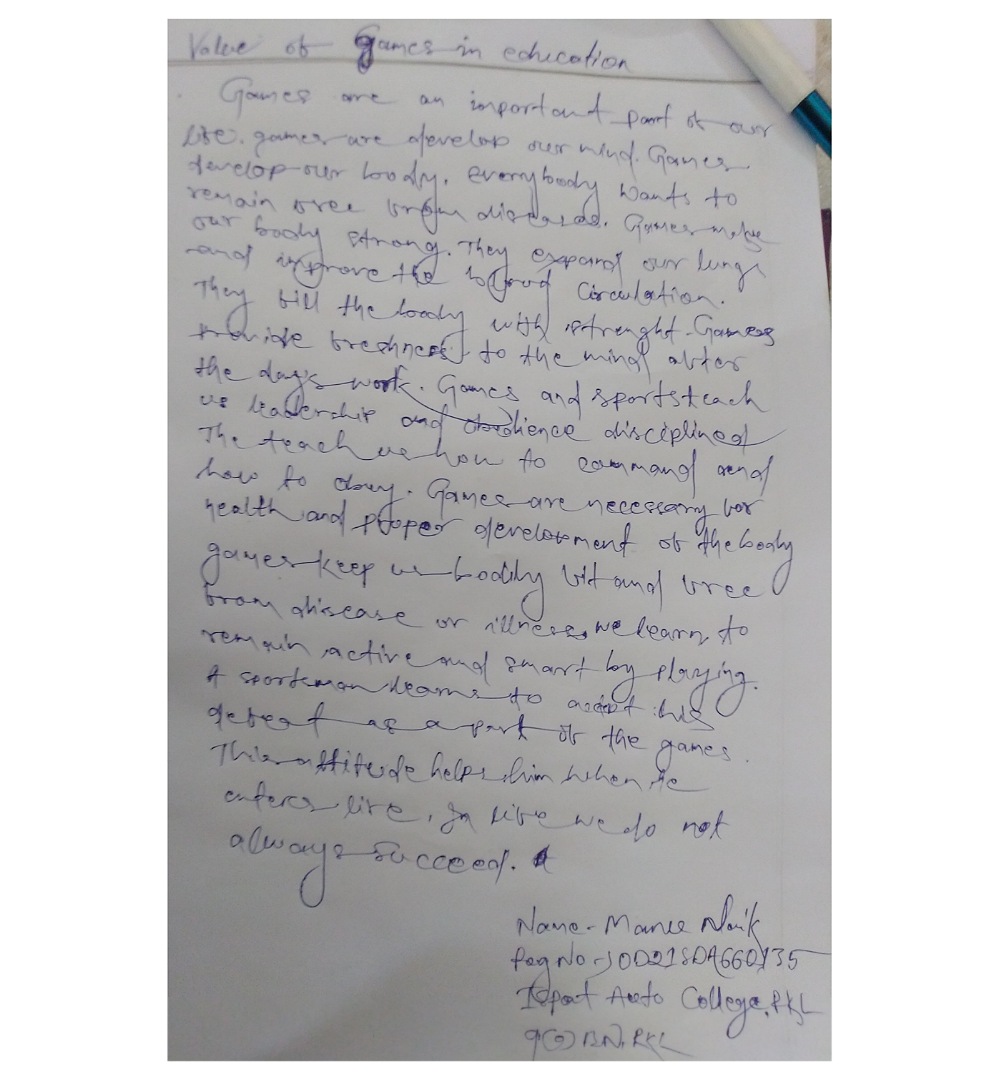 Value of Games in education
Games are an important part of our
life. games are develop our mind. Games
develop our body. everybody wants to
remain free from diseases. Games make
our body strong. They expand our lungs
and improve the blood circulation.
They fill the body with strenght. Games
provide freshness to the mind after
the day's work. Games and sports teach
us leadership and obedience disciplined
The teach us how to command and
how to obey. Games are necessary for
health and proper development of the body
games keep us bodily fit and free
from disease or illness, we learn to
remain active and smart by playing.
A sportsman learns to his
defeat as a part of the games.
This attitude helps him when he
enters life. In life we do not
always succeed.
Name- Manee Naik
Reg No-
Ispat Auto College, RKL
BN, RKL